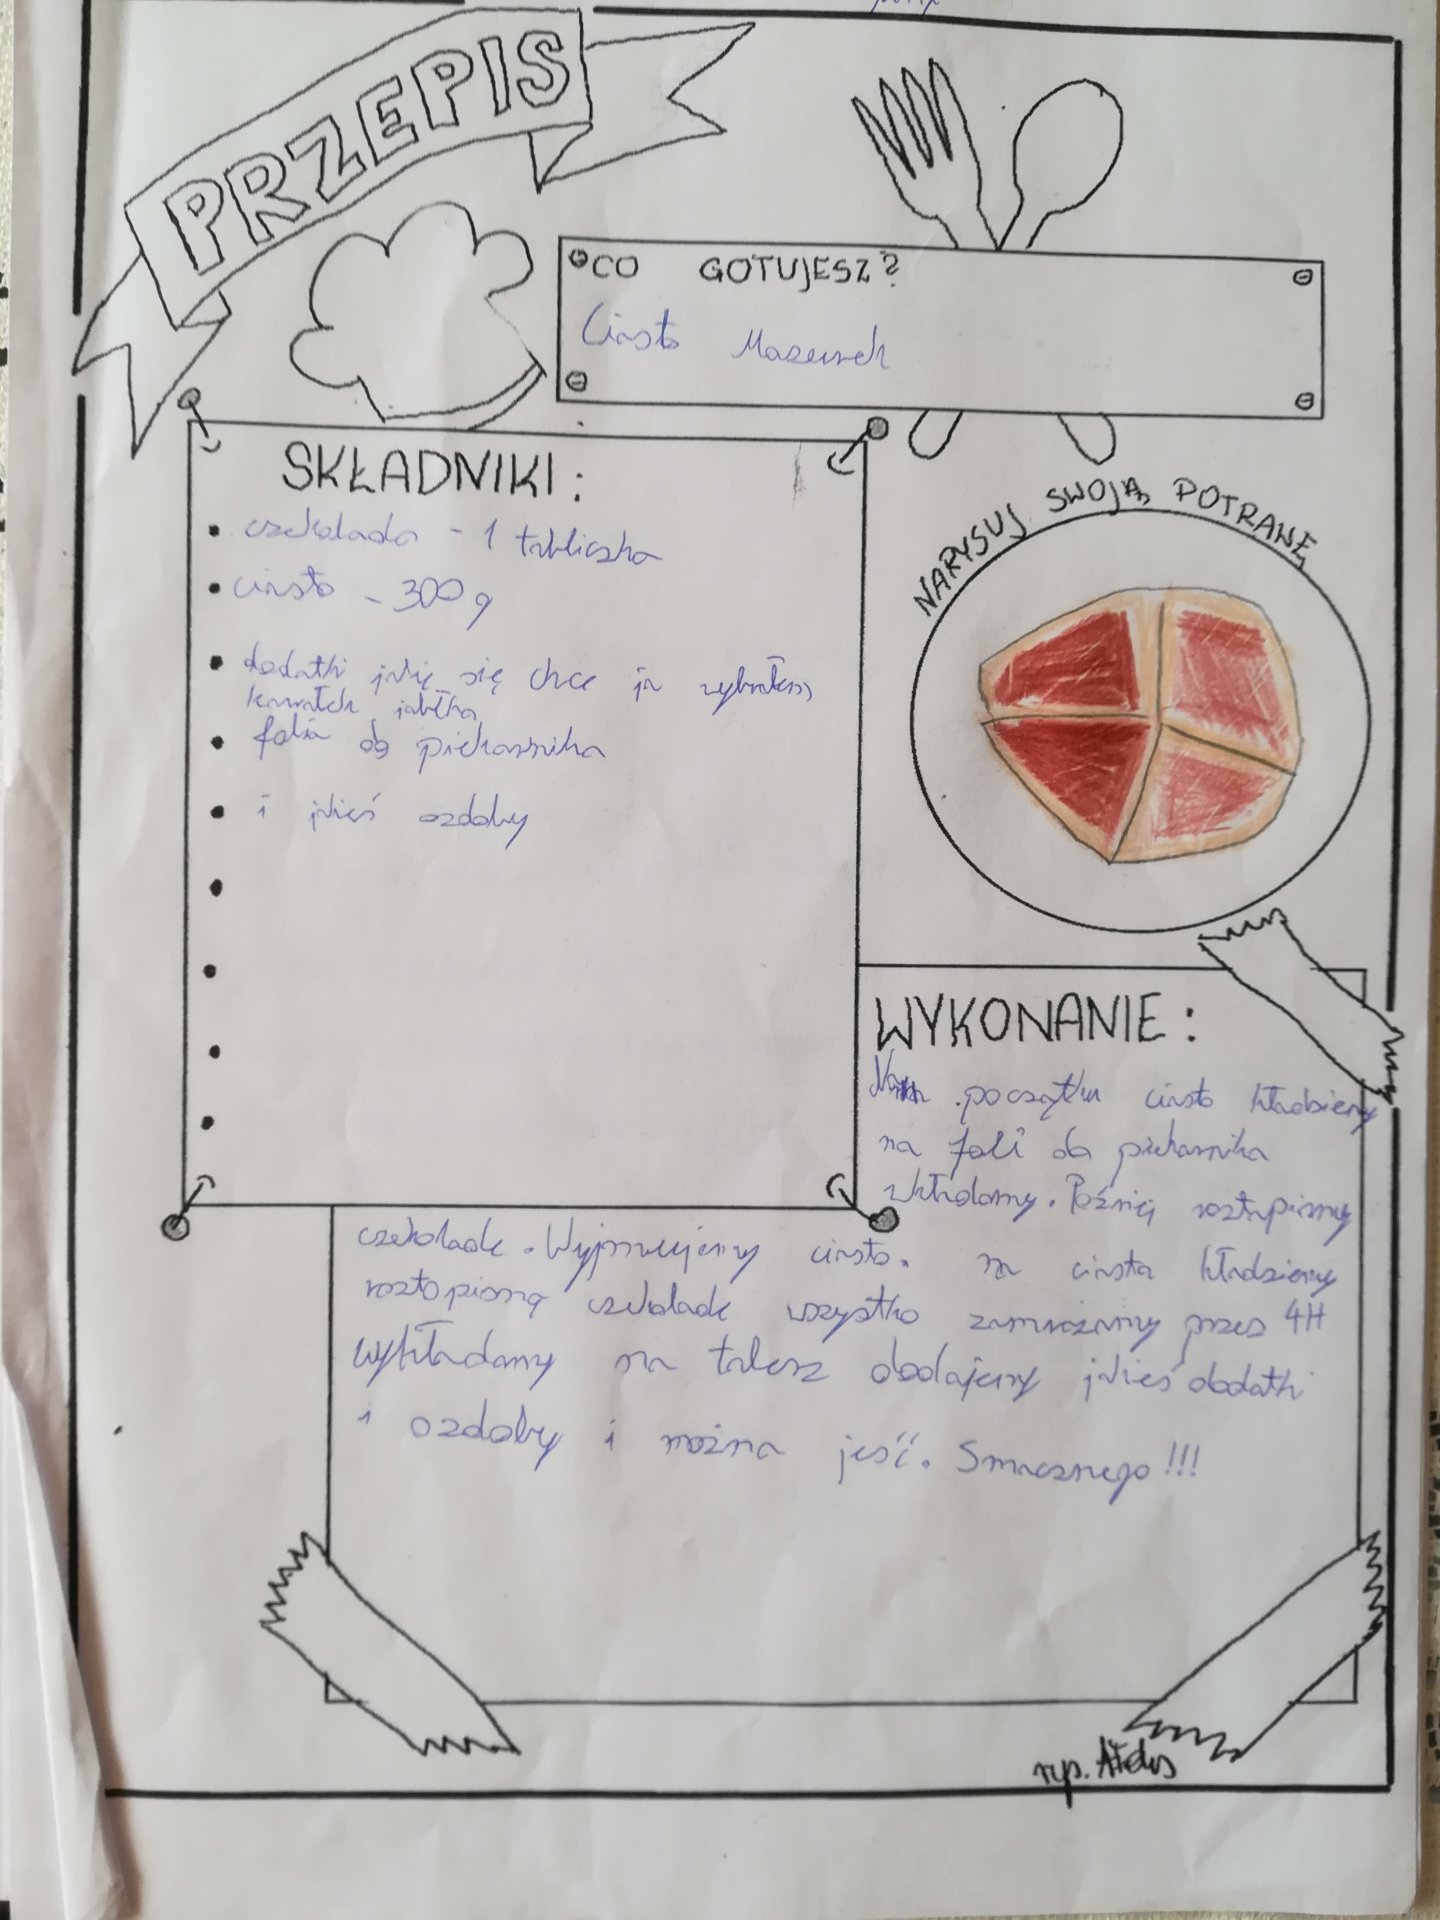 PRZEPIS
CO GOTUJESZ?
Ciasto Mazurek
SKŁADNIKI:
• czekolada - 1 tabliczka
• ciasto - 300 g
• dodatki się chce ja
kawałek jabłka
• folia do piekarnika
• i ozdoby
NARYSUJ SWOJĄ POTRANĘ
WYKONANIE:
Na początku ciasto kładziemy
na foli do piekarnika
wkładamy. Później roztapiamy
czekolade. Wyjmujemy ciasto. na ciasta kładziemy
roztopioną czekolade wszystko zamrażamy przez 4H
wykładamy na talerz dodajemy dodatki
i ozdoby i można jeść. Smacznego!!!
rys.